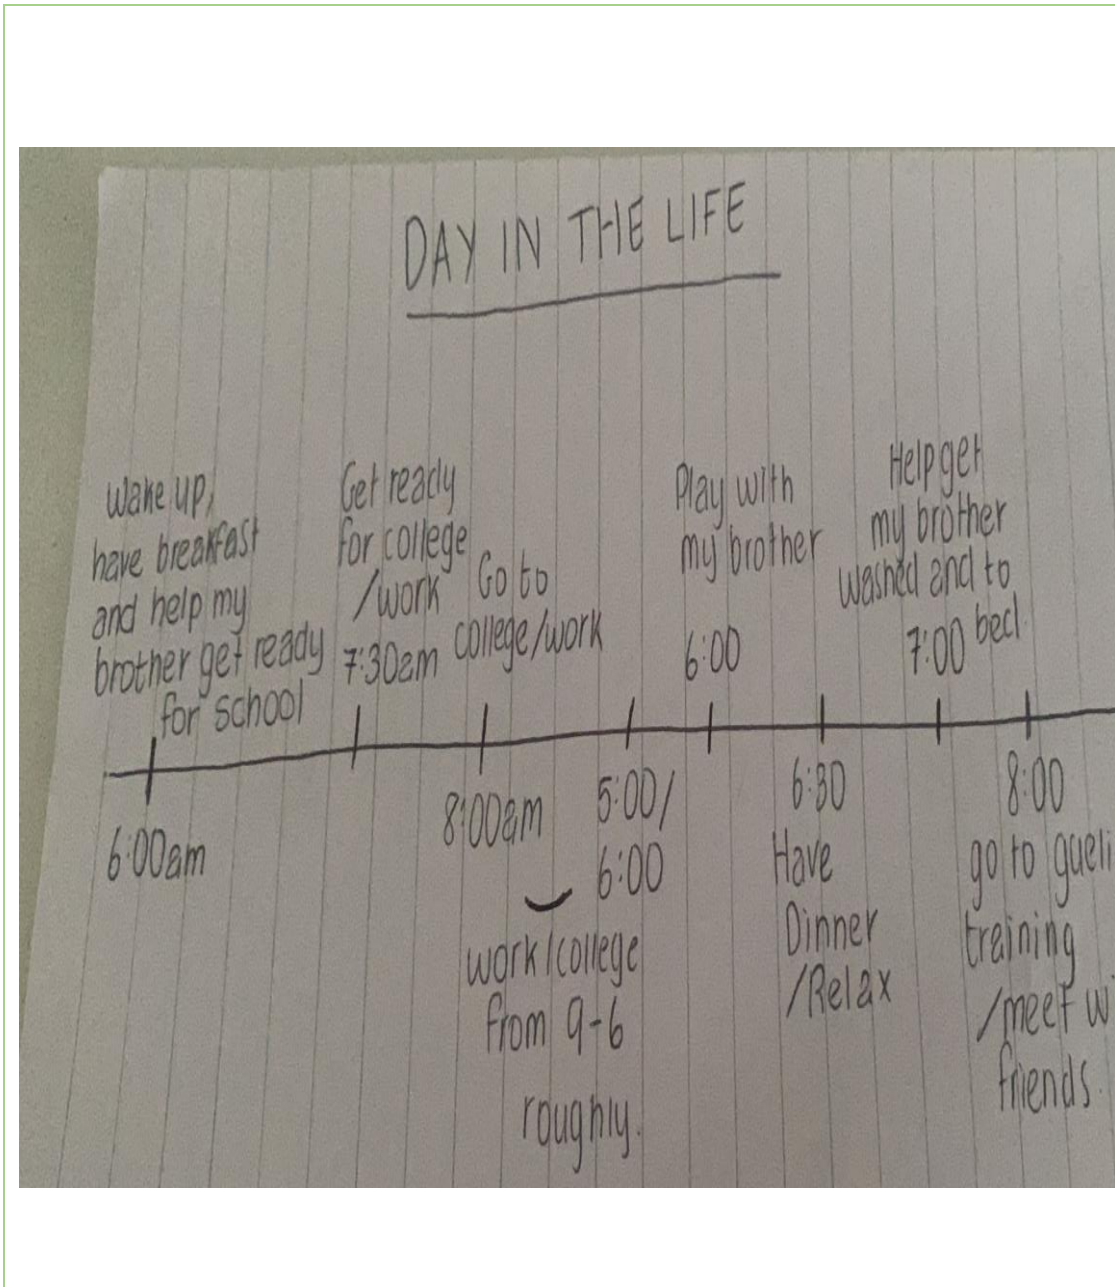 DAY IN THE LIFE
Wake up,
have breakfast
and help my
brother get ready
for school
6:00am
Get ready
for college
/work
7:30am
Go to
college/work
8:00am
5:00/
6:00
work/college
from 9-6
roughly.
Play with
my brother
6:00
6:30
Have
Dinner
/Relax
Help get
my brother
washed and to
bed
7:00
8:00
go to
training
/meet
friends.